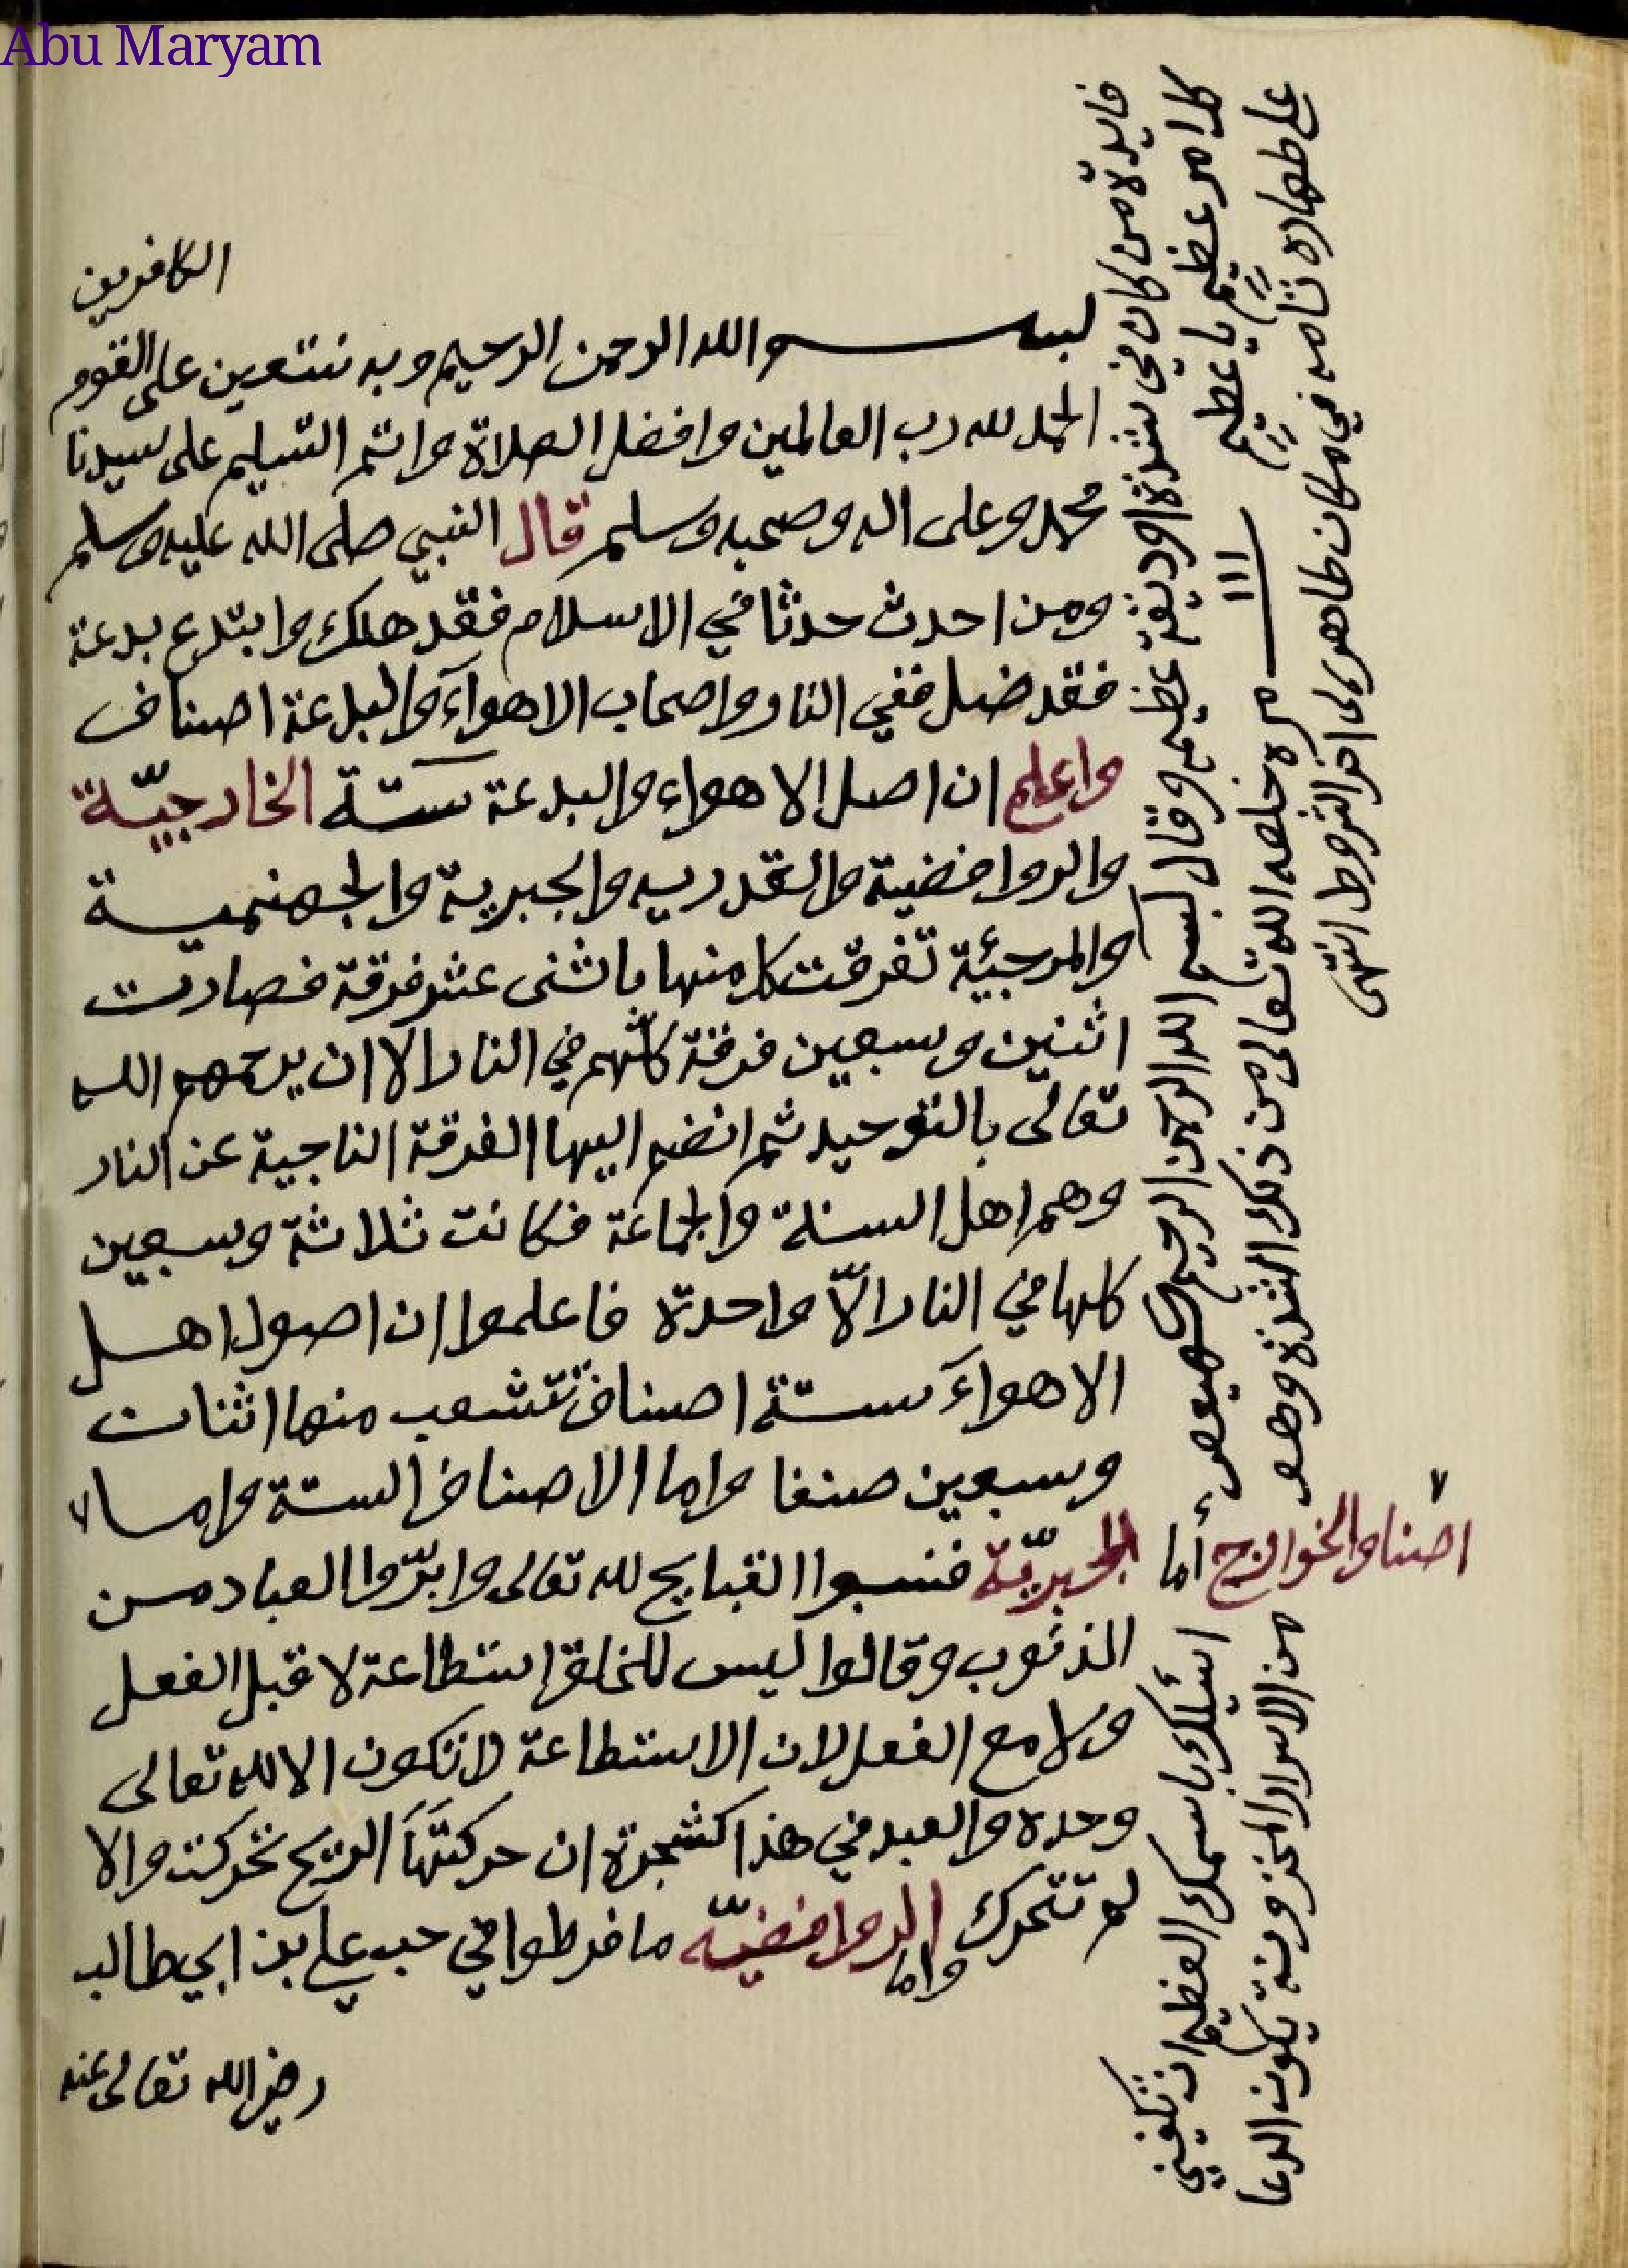 Abu Maryam
الكافرين
بسم الله الرحمن الرحيم وبه نستعين على القوم
الحمد لله رب العالمين وافضل الصلاة واتم التسليم على سيدنا
محمد وعلى اله وصحبه وسلم قال النبي صلى الله عليه وسلم
ومن احدث حدثا في الاسلام فقد هلك وابتدع بدعة
فقد ضل ففي النار واصحاب الاهوآء والبدعة اصناف
واعلم ان اصل الاهواء والبدعة ستة الخارجيّة
والروافضية والقدريه والجبرية والجهنمية
والمرجئية تفرقت كل منها باثنى عشر فرقة فصارت
اثنين وسبعين فرقة كلّهم في النار الا ان يرحمهم الله
تعالى بالتوحيد ثم انضم اليها الفرقة الناجية عن النار
وهم اهل السنة والجماعة فكانت ثلاثة وسبعين
كلها في النار الّا واحدة فاعلموا ان اصول اهل
الاهوآء ستة اصناف تتشعب منها اثنان
وسبعين صنفا واما الاصناف الستة واما ٧
أما الجبريّة فنسبوا القبايح لله تعالى وابرّوا العباد من
الذنوب وقالوا ليس للخلق استطاعة لا قبل الفعل
ولا مع الفعل لان الاستطاعة لا تكون الا لله تعالى
وحده والعبد في هذا كشجرة ان حركتَهَا الريح تحركت والا
لم تتحرك واما الروافضيّه ما فرطوا في حب علي بن ابي طالب
رضي الله تعالى عنه
٧ اصناف الخوارج
فايدة من كان في شدة او ديقة عظيمه وقال بسم الله الرحمن الرحيم كهيعص اسئلك باسمك العظيم ان تكفيني
كل امر عظيم يا عظيم ١١١ مره خلصه الله تعالى من ذلك الشدة وهو من الاسرار المخزونة يكون الدعا
على طهارة تامه في مكان طاهر الى اخر الشروط انتهى